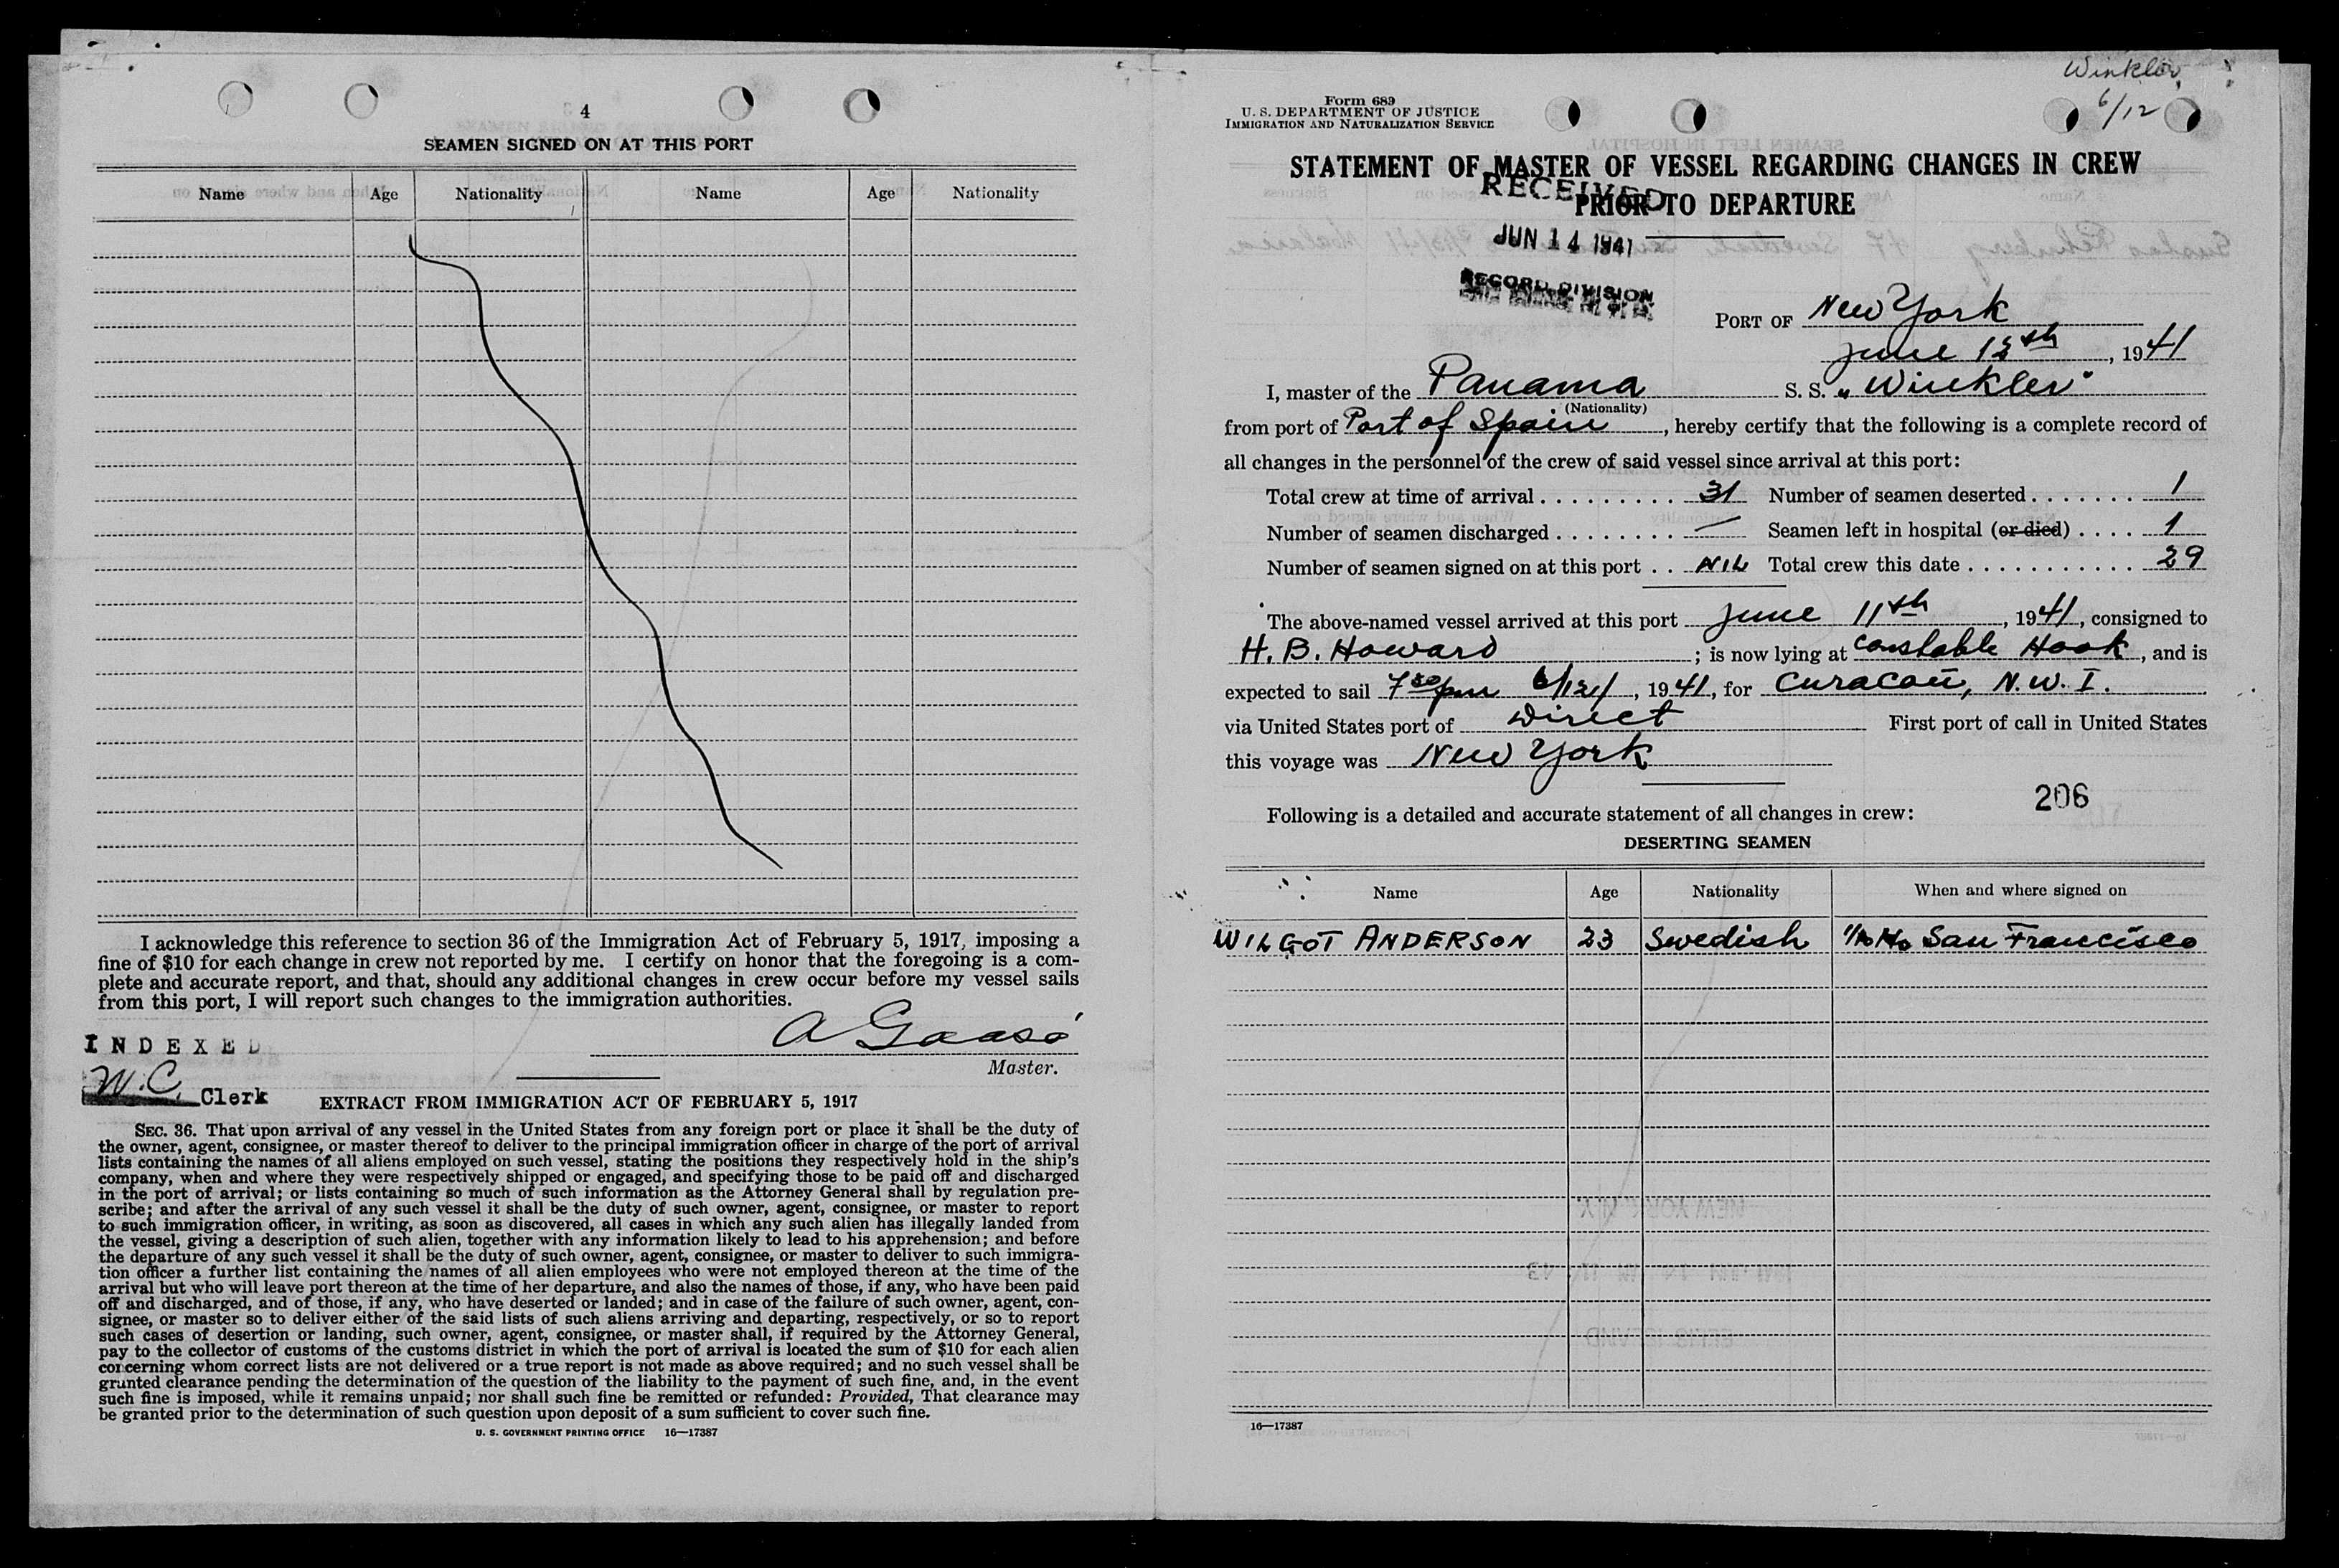 4
SEAMEN SIGNED ON AT THIS PORT
Name Age Nationality Name Age Nationality
I acknowledge this reference to section 36 of the Immigration Act of February 5, 1917, imposing a
fine of $10 for each change in crew not reported by me. I certify on honor that the foregoing is a com-
plete and accurate report, and that, should any additional changes in crew occur before my vessel sails
from this port, I will report such changes to the immigration authorities.
A Gaasö
Master.
INDEXED
W.C. Clerk
EXTRACT FROM IMMIGRATION ACT OF FEBRUARY 5, 1917
SEC. 36. That upon arrival of any vessel in the United States from any foreign port or place it shall be the duty of
the owner, agent, consignee, or master thereof to deliver to the principal immigration officer in charge of the port of arrival
lists containing the names of all aliens employed on such vessel, stating the positions they respectively hold in the ship's
company, when and where they were respectively shipped or engaged, and specifying those to be paid off and discharged
in the port of arrival; or lists containing so much of such information as the Attorney General shall by regulation pre-
scribe; and after the arrival of any such vessel it shall be the duty of such owner, agent, consignee, or master to report
to such immigration officer, in writing, as soon as discovered, all cases in which any such alien has illegally landed from
the vessel, giving a description of such alien, together with any information likely to lead to his apprehension; and before
the departure of any such vessel it shall be the duty of such owner, agent, consignee, or master to deliver to such immigra-
tion officer a further list containing the names of all alien employees who were not employed thereon at the time of the
arrival but who will leave port thereon at the time of her departure, and also the names of those, if any, who have been paid
off and discharged, and of those, if any, who have deserted or landed; and in case of the failure of such owner, agent, con-
signee, or master so to deliver either of the said lists of such aliens arriving and departing, respectively, or so to report
such cases of desertion or landing, such owner, agent, consignee, or master shall, if required by the Attorney General,
pay to the collector of customs of the customs district in which the port of arrival is located the sum of $10 for each alien
concerning whom correct lists are not delivered or a true report is not made as above required; and no such vessel shall be
granted clearance pending the determination of the question of the liability to the payment of such fine, and, in the event
such fine is imposed, while it remains unpaid; nor shall such fine be remitted or refunded: Provided, That clearance may
be granted prior to the determination of such question upon deposit of a sum sufficient to cover such fine.
U. S. GOVERNMENT PRINTING OFFICE 16—17387
Winkler
6/12
Form 689
U. S. DEPARTMENT OF JUSTICE
IMMIGRATION AND NATURALIZATION SERVICE
STATEMENT OF MASTER OF VESSEL REGARDING CHANGES IN CREW
PRIOR TO DEPARTURE
RECEIVED
JUN 14 1941
RECORD DIVISION
PORT OF New York
June 12th, 1941
I, master of the Panama S. S. "Winkler"
(Nationality)
from port of Port of Spain, hereby certify that the following is a complete record of
all changes in the personnel of the crew of said vessel since arrival at this port:
Total crew at time of arrival . . . . . . . . . 31 Number of seamen deserted . . . . . . . 1
Number of seamen discharged . . . . . . . . — Seamen left in hospital (or died) . . . . 1
Number of seamen signed on at this port . . NIL Total crew this date . . . . . . . . . . . 29
The above-named vessel arrived at this port June 11th, 1941, consigned to
H. B. Howard; is now lying at Constable Hook, and is
expected to sail 7 30/pm 6/12/, 1941, for Curacao, N. W. I.
via United States port of Direct First port of call in United States
this voyage was New York
206
Following is a detailed and accurate statement of all changes in crew:
DESERTING SEAMEN
Name Age Nationality When and where signed on
WILGOT ANDERSON 23 Swedish San Francisco
16—17387